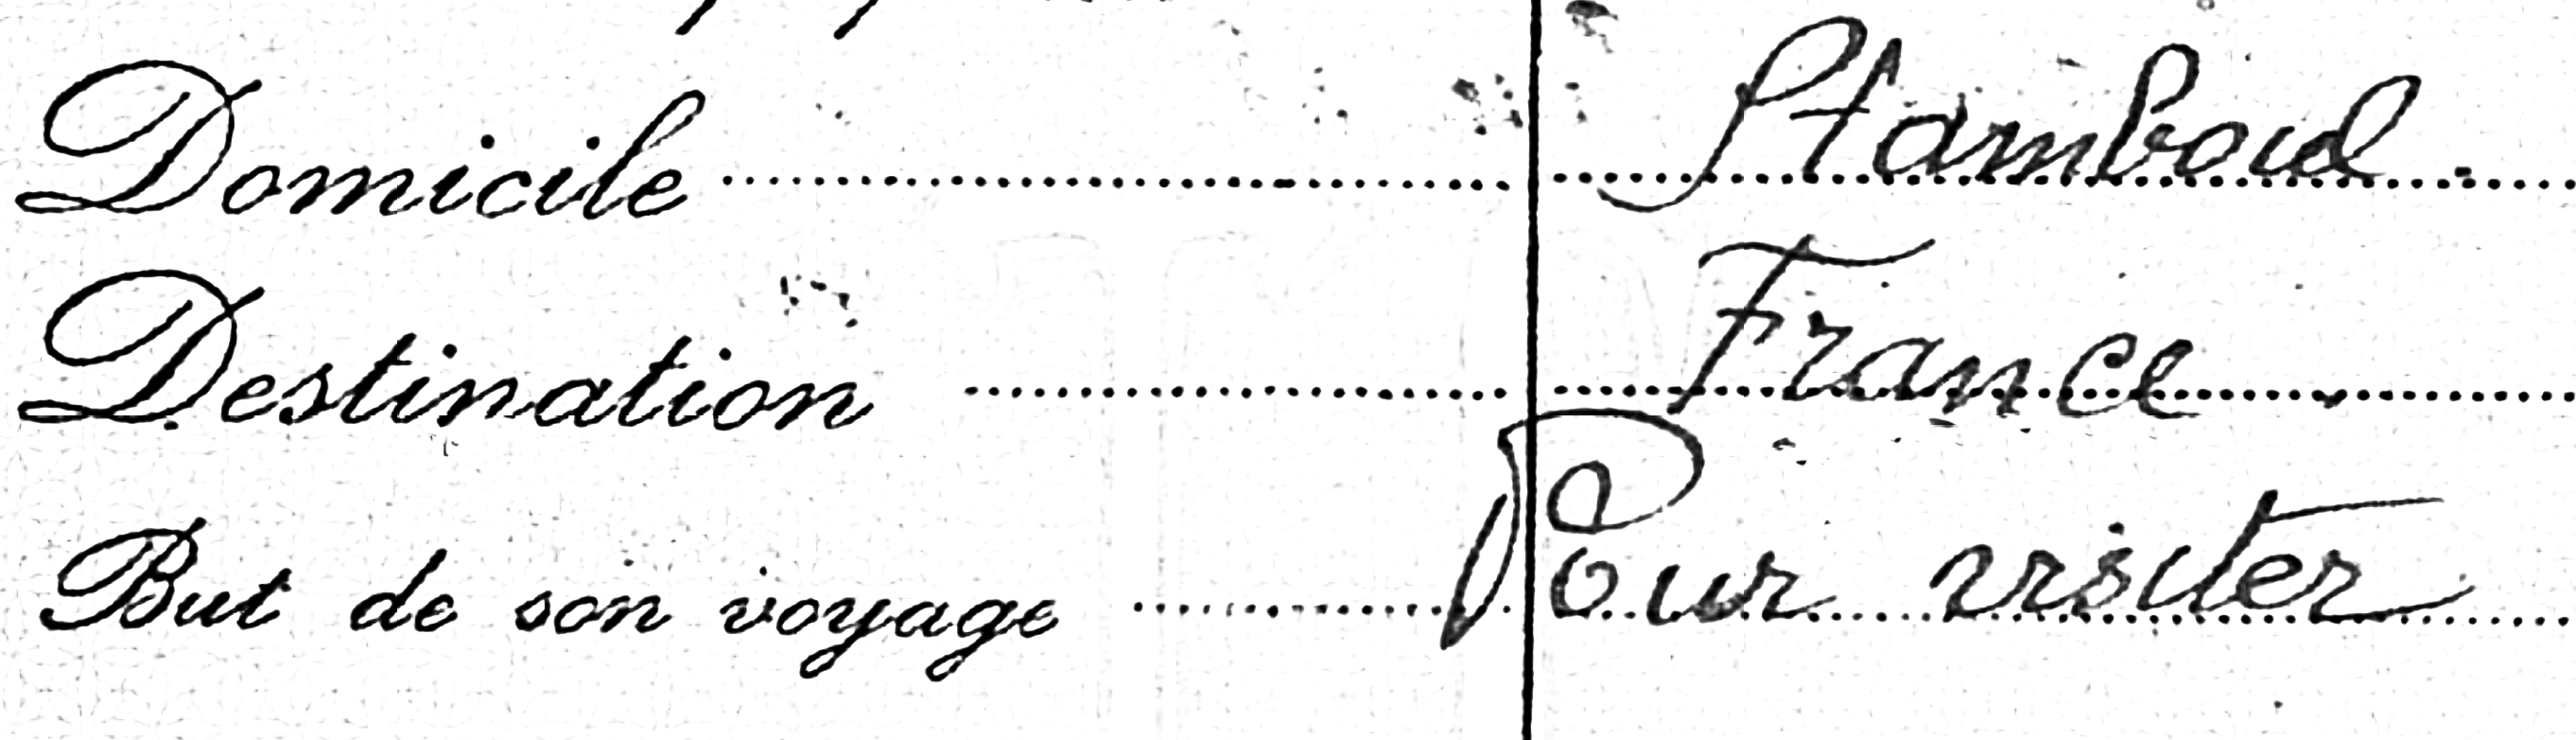 Domicile Stamboul.
Destination France
But de son voyage Pour visiter